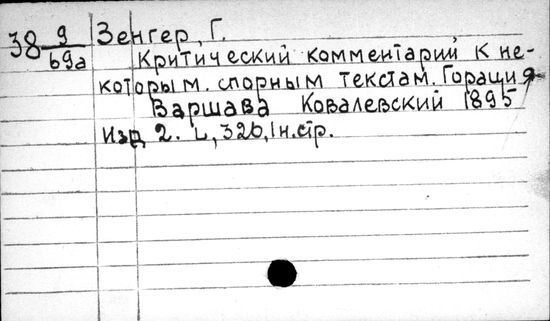 38 9/69а Зенгер, Г.
Критический комментарий к не-
которым. спорным текстам. Горация
Варшава Ковалевский 1895
изд 2. L, 320, 1н.стр.